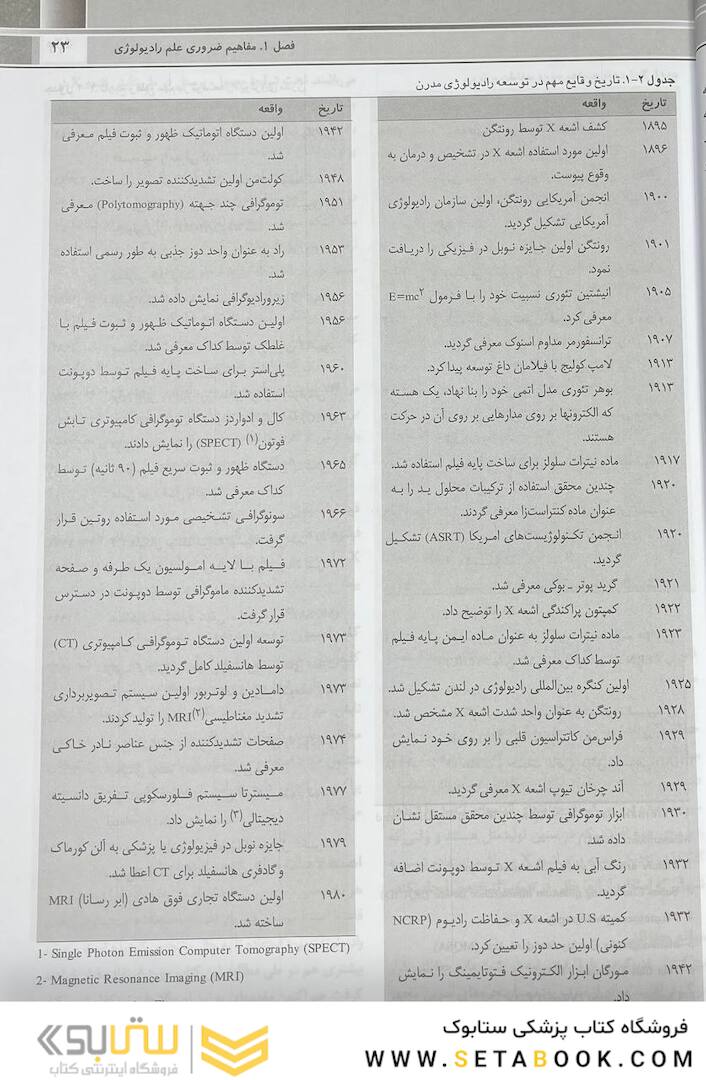 فصل ۱. مفاهیم ضروری علم رادیولوژی
۲۳
جدول ۲-۱. تاریخ وقایع مهم در توسعه رادیولوژی مدرن
تاریخ واقعه
۱۸۹۵ کشف اشعه X توسط رونتگن
۱۸۹۶ اولین مورد استفاده اشعه X در تشخیص و درمان به
وقوع پیوست.
۱۹۰۰ انجمن آمریکایی رونتگن، اولین سازمان رادیولوژی
آمریکایی تشکیل گردید.
۱۹۰۱ رونتگن اولین جایزه نوبل در فیزیکی را دریافت
نمود.
۱۹۰۵ انیشتین تئوری نسبیت خود را با فرمول E=mc²
معرفی کرد.
۱۹۰۷ ترانسفورمر مداوم اسنوک معرفی گردید.
۱۹۱۳ لامپ کولیج با فیلامان داغ توسعه پیدا کرد.
۱۹۱۳ بوهر تئوری مدل اتمی خود را بنا نهاد، یک هسته
که الکترونها بر روی مدارهایی بر روی آن در حرکت
هستند.
۱۹۱۷ ماده نیترات سلولز برای ساخت پایه فیلم استفاده شد.
۱۹۲۰ چندین محقق استفاده از ترکیبات محلول ید را به
عنوان ماده کنتراست‌زا معرفی گردند.
۱۹۲۰ انجمن تکنولوژیست‌های امریکا (ASRT) تشکیل
گردید.
۱۹۲۱ گرید پوتر ـ بوکی معرفی شد.
۱۹۲۲ کمپتون پراکندگی اشعه X را توضیح داد.
۱۹۲۳ ماده نیترات سلولز به عنوان ماده ایمن پایه فیلم
توسط کداک معرفی شد.
۱۹۲۵ اولین کنگره بین‌المللی رادیولوژی در لندن تشکیل شد.
۱۹۲۸ رونتگن به عنوان واحد شدت اشعه X مشخص شد.
۱۹۲۹ فراس‌من کاتتراسیون قلبی را بر روی خود نمایش
داد.
۱۹۲۹ آند چرخان تیوب اشعه X معرفی گردید.
۱۹۳۰ ابزار توموگرافی توسط چندین محقق مستقل نشان
داده شد.
۱۹۳۲ رنگ آبی به فیلم اشعه X توسط دوپونت اضافه
گردید.
۱۹۳۲ کمیته U.S در اشعه X و حفاظت رادیوم (NCRP
کنونی) اولین حد دوز را تعیین کرد.
۱۹۴۲ مورگان ابزار الکترونیک فتوتایمینگ را نمایش
داد.
تاریخ واقعه
۱۹۴۲ اولین دستگاه اتوماتیک ظهور و ثبوت فیلم معرفی
شد.
۱۹۴۸ کولت‌من اولین تشدیدکننده تصویر را ساخت.
۱۹۵۱ توموگرافی چند جهته (Polytomography) معرفی
شد.
۱۹۵۳ راد به عنوان واحد دوز جذبی به طور رسمی استفاده
شد.
۱۹۵۶ زیرورادیوگرافی نمایش داده شد.
۱۹۵۶ اولین دستگاه اتوماتیک ظهور و ثبوت فیلم با
غلطک توسط کداک معرفی شد.
۱۹۶۰ پلی‌استر برای ساخت پایه فیلم توسط دوپونت
استفاده شد.
۱۹۶۳ کال و ادواردز دستگاه توموگرافی کامپیوتری تابش
فوتون(۱) (SPECT) را نمایش دادند.
۱۹۶۵ دستگاه ظهور و ثبوت سریع فیلم (۹۰ ثانیه) توسط
کداک معرفی شد.
۱۹۶۶ سونوگرافی تشخیصی مورد استفاده روتین قرار
گرفت.
۱۹۷۲ فیلم با لایه امولسیون یک طرفه و صفحه
تشدیدکننده ماموگرافی توسط دوپونت در دسترس
قرار گرفت.
۱۹۷۳ توسعه اولین دستگاه توموگرافی کامپیوتری (CT)
توسط هانسفیلد کامل گردید.
۱۹۷۳ دامادین و لوتربور اولین سیستم تصویربرداری
تشدید مغناطیسی(۲)MRI را تولید کردند.
۱۹۷۴ صفحات تشدیدکننده از جنس عناصر نادر خاکی
معرفی شد.
۱۹۷۷ میسترتا سیستم فلورسکوپی تفریق دانسیته
دیجیتالی(۳) را نمایش داد.
۱۹۷۹ جایزه نوبل در فیزیولوژی یا پزشکی به آلن کورماک
و گادفری هانسفیلد برای CT اعطا شد.
۱۹۸۰ اولین دستگاه تجاری فوق هادی (ابر رسانا) MRI
ساخته شد.
1- Single Photon Emission Computer Tomography (SPECT)
2- Magnetic Resonance Imaging (MRI)
فروشگاه کتاب پزشکی ستابوک
WWW.SETABOOK.COM
ستابوک
فروشگاه اینترنتی کتاب